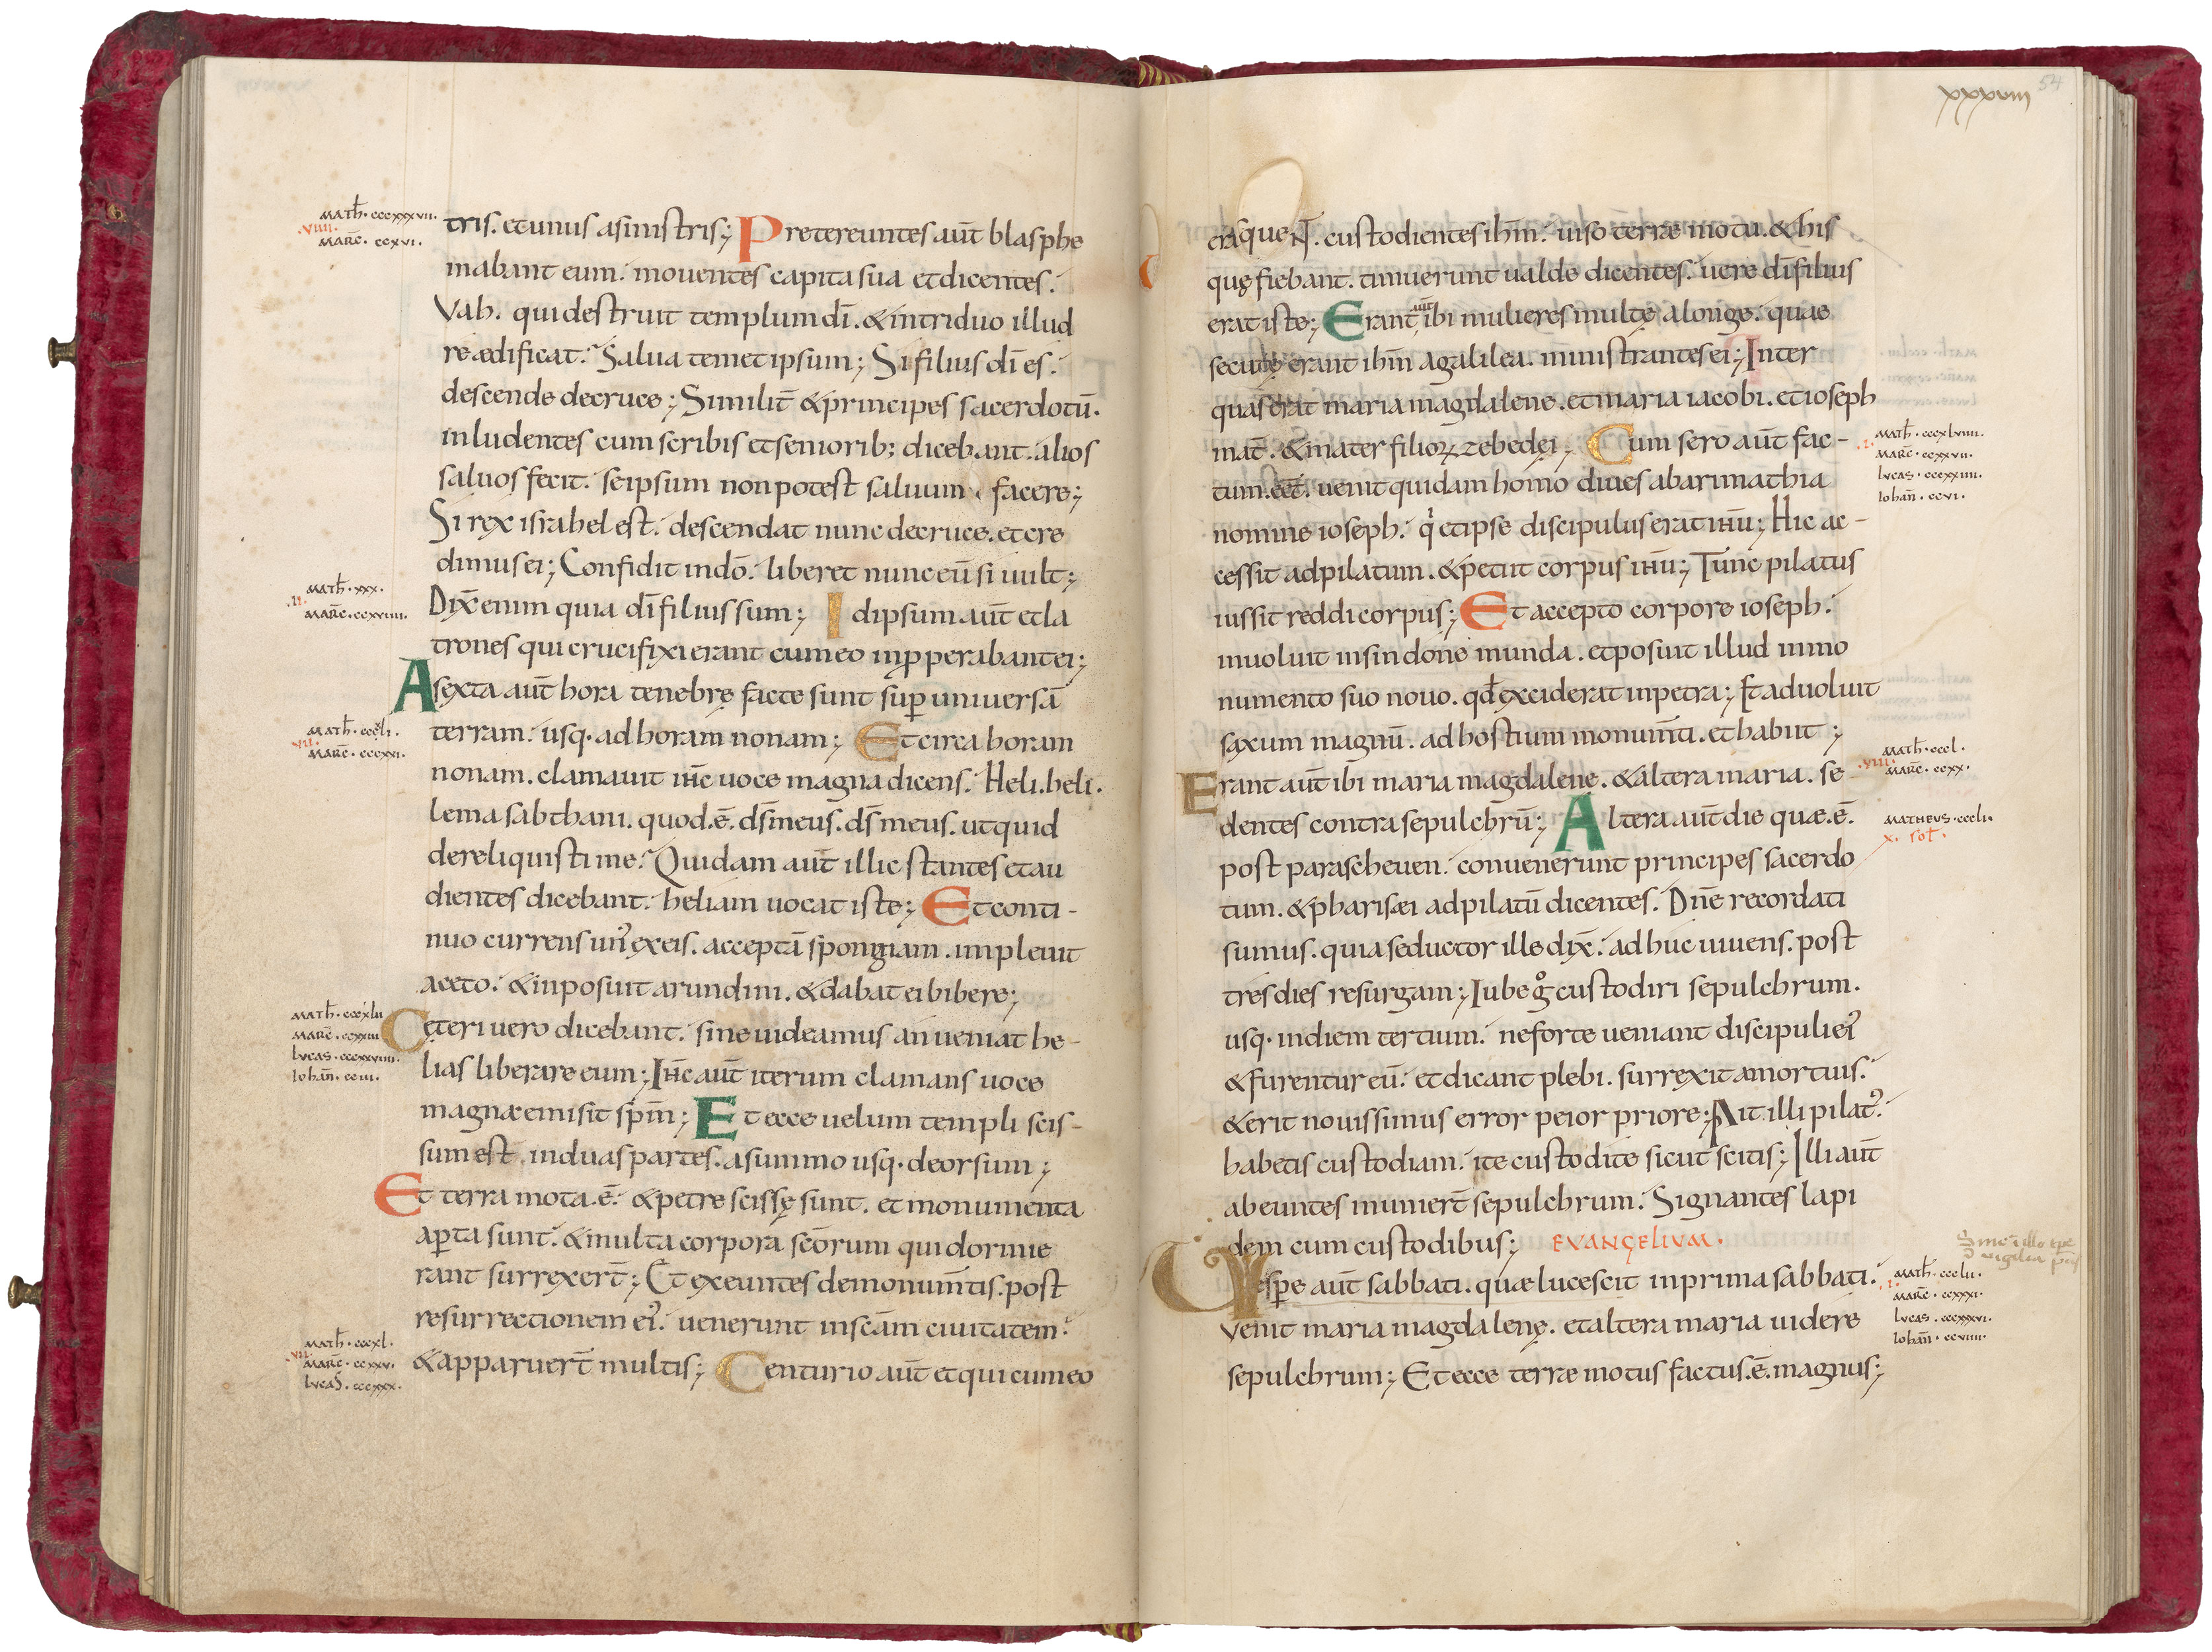 MATH̄ · cccxxxvii ·
·viiii·
MARC̄ · ccxvi ·
tris. et unus asinistris; Pretereuntes aut̄ blasphe
mabant eum. mouentes capita sua et dicentes.
Vah. qui destruit templum dī. & in triduo illud
reædificat. Salua temet ipsum; Si filius dī es.
descende decruce; Similit̄ & principes sacerdotū.
inludentes cum scribis et seniorib; dicebant. alios
saluos fecit. seipsum non potest saluum facere;
Si rex israhel est. descendat nunc decruce. et cre
dimus ei; Confidit indō. liberet nunc eū si uult;
MATH̄ · xxx ·
·ii·
MARC̄ · ccxviiii ·
Dix̄ enim quia dī filius sum; Idipsum aut̄ et la
trones qui crucifixi erant cum eo inꝓperabant ei;
Asexta aut̄ hora tenebrę factę sunt suꝑ uniuersā
MATH̄ · cccli ·
vii·
MARC̄ · cccxxi ·
terram. usq· ad horam nonam; Et circa horam
nonam. clamauit iħc uoce magna dicens. Heli. heli.
lema sabthani. quod.ē. ds̄ meus. ds̄ meus. utquid
dereliquisti me. Quidam aut̄ illic stantes et au
dientes dicebant. heliam uocat iste; Et conti-
nuo currens unꝰ exeis. acceptā spongiam. impleuit
aceto. & inposuit arundini. & dabat ei bibere;
MATH̄ · cccxlii
MARC̄ · ccxxiii
LVCAS · cccxxviiii ·
IOHAN̄ · cciii ·
Ceteri uero dicebant. sine uideamus an ueniat he-
lias liberare eum; Iħc aut̄ iterum clamans uoce
magna emisit sp̄m; Et ecce uelum templi scis-
sum est. induas partes. asummo usq· deorsum;
Et terra mota.ē. & petre scissę sunt. et monumenta
aꝑta sunt. & multa corpora scōrum qui dormie
rant surrexer̄t; Et exeuntes demonum̄tis. post
resurrectionem eiꝰ. uenerunt in scām ciuitatem.
MATH̄ · cccxl ·
·vii·
MARC̄ · ccxxv ·
LVCAS̄ · cccxxx ·
& apparuer̄t multis; Centurio aut̄ et qui cum eo
xxxviii
54
eraque N̄. custodientes ihm̄. uiso terræ motu. & his
quę fiebant. timuerunt ualde dicentes. uere dī filius
erat iste; Erant aut̄ ibi mulieres multę alonge. quae
secutę erant ihm̄ agalilea. ministrantes ei; Inter
quas erat maria magdalene. et maria iacobi. et ioseph
mat̄. & mater filioꝝ zebedęi; Cum sero aut̄ fac-
MATH̄ · cccxlviiii ·
·i·
MARC̄ · ccxxvii ·
LVCAS · cccxxiiii ·
IOHAN̄ · ccvi ·
tum.eēt. uenit quidam homo diues abarimathia
nomine ioseph. q̇ et ipse discipulus erat iħu; Hic ac-
cessit adpilatum. & petiit corpus iħu; Tunc pilatus
iussit reddi corpus; Et accepto corpore ioseph.
inuoluit insindone munda. et posuit illud inmo
numento suo nouo. qd̄ exciderat inpetra; Et aduoluit
saxum magnū. ad hostium monum̄ti. et habiit;
MATH̄ · cccl ·
·viii·
MARC̄ · ccxx ·
Erant aut̄ ibi maria magdalene. & altera maria. se
dentes contra sepulchrū; Altera aut̄ die quæ.ē.
MATHEVS · cccli ·
x. sol̄ ·
post parascheuen. conuenerunt principes sacerdo
tum. & pharisæi adpilatū dicentes. Dn̄e recordati
sumus. quia seductor ille dix̄. adhuc uiuens. post
tres dies resurgam; Iube gͦ custodiri sepulchrum.
usq· indiem tertium. neforte ueniant discipuli eiꝰ
& furentur eū. et dicant plebi. surrexit amortuis.
& erit nouissimus error peior priore; Ait illi pilatꝰ.
habetis custodiam. ite custodite sicut scitis; Illi aut̄
abeuntes munier̄t sepulchrum. Signantes lapi
dem cum custodibus; EVANGELIVM ·
Vesꝑe aut̄ sabbati. quæ lucescit inprima sabbati.
MATH̄ · ccclii ·
·i·
MARC̄ · ccxxxi ·
LVCAS · cccxxxvi ·
IOHAN̄ · ccviiii ·
Venit maria magdalenę. et altera maria uidere
sepulchrum; Et ecce terræ motus factus.ē. magnus;